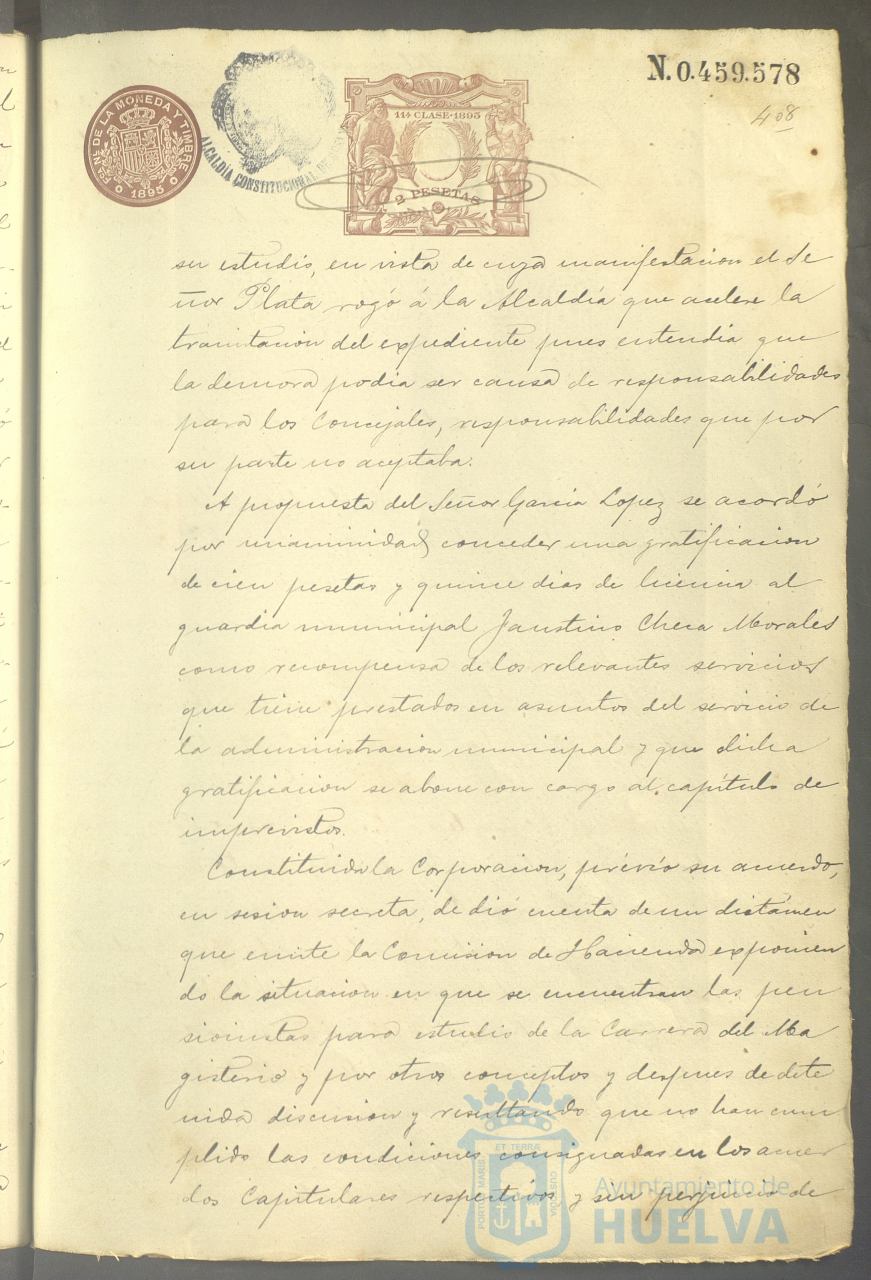 N. 0.459.578
408
FABca NL. DE LA MONEDA Y TIMBRE
1895
ALCALDÍA CONSTITUCIONAL DE
11ª CLASE·1895
2 PESETAS
su estudio, en vista de cuya manifestacion el Se
ñor Plata rogó á la Alcaldía que acelere la
tramitacion del expediente pues entendia que
la demora podia ser causa de responsabilidades
para los Concejales, responsabilidades que por
su parte no aceptaba.
A propuesta del Señor Garcia Lopez se acordó
por unanimidad conceder una gratificacion
de cien pesetas y quince dias de licencia al
guardia municipal Faustino Checa Morales
como recompensa de los relevantes servicios
que tiene prestados en asuntos del servicio de
la administracion municipal y que dicha
gratificacion se abone con cargo al capítulo de
imprevistos.
Constituida la Corporacion, prévio su acuerdo,
en sesion secreta, de dió cuenta de un dictámen
que emite la Comision de Hacienda exponien
do la situacion en que se encuentran las pen
sionistas para estudio de la Carrera del Ma
gisterio y por otros conceptos y despues de dete
nida discusion y resultando que no han cum
plido las condiciones consignadas en los acuer
dos Capitulares respectivos y sin perjuicio de
PORTUS MARIS ET TERRÆ CUSTODIA
Ayuntamiento de
HUELVA